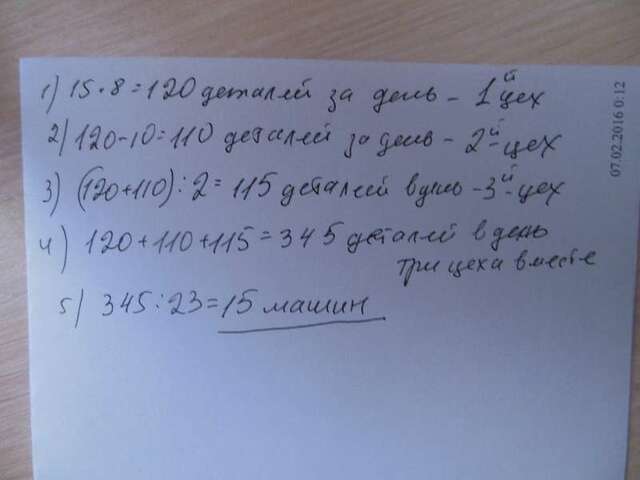 1) 15·8=120 деталей за день - 1й цех
2) 120-10=110 деталей за день - 2й-цех
3) (120+110):2=115 деталей в день -3й-цех
4) 120+110+115=345 деталей в день
три цеха вместе
5) 345:23=15 машин
07.02.2016 0:12